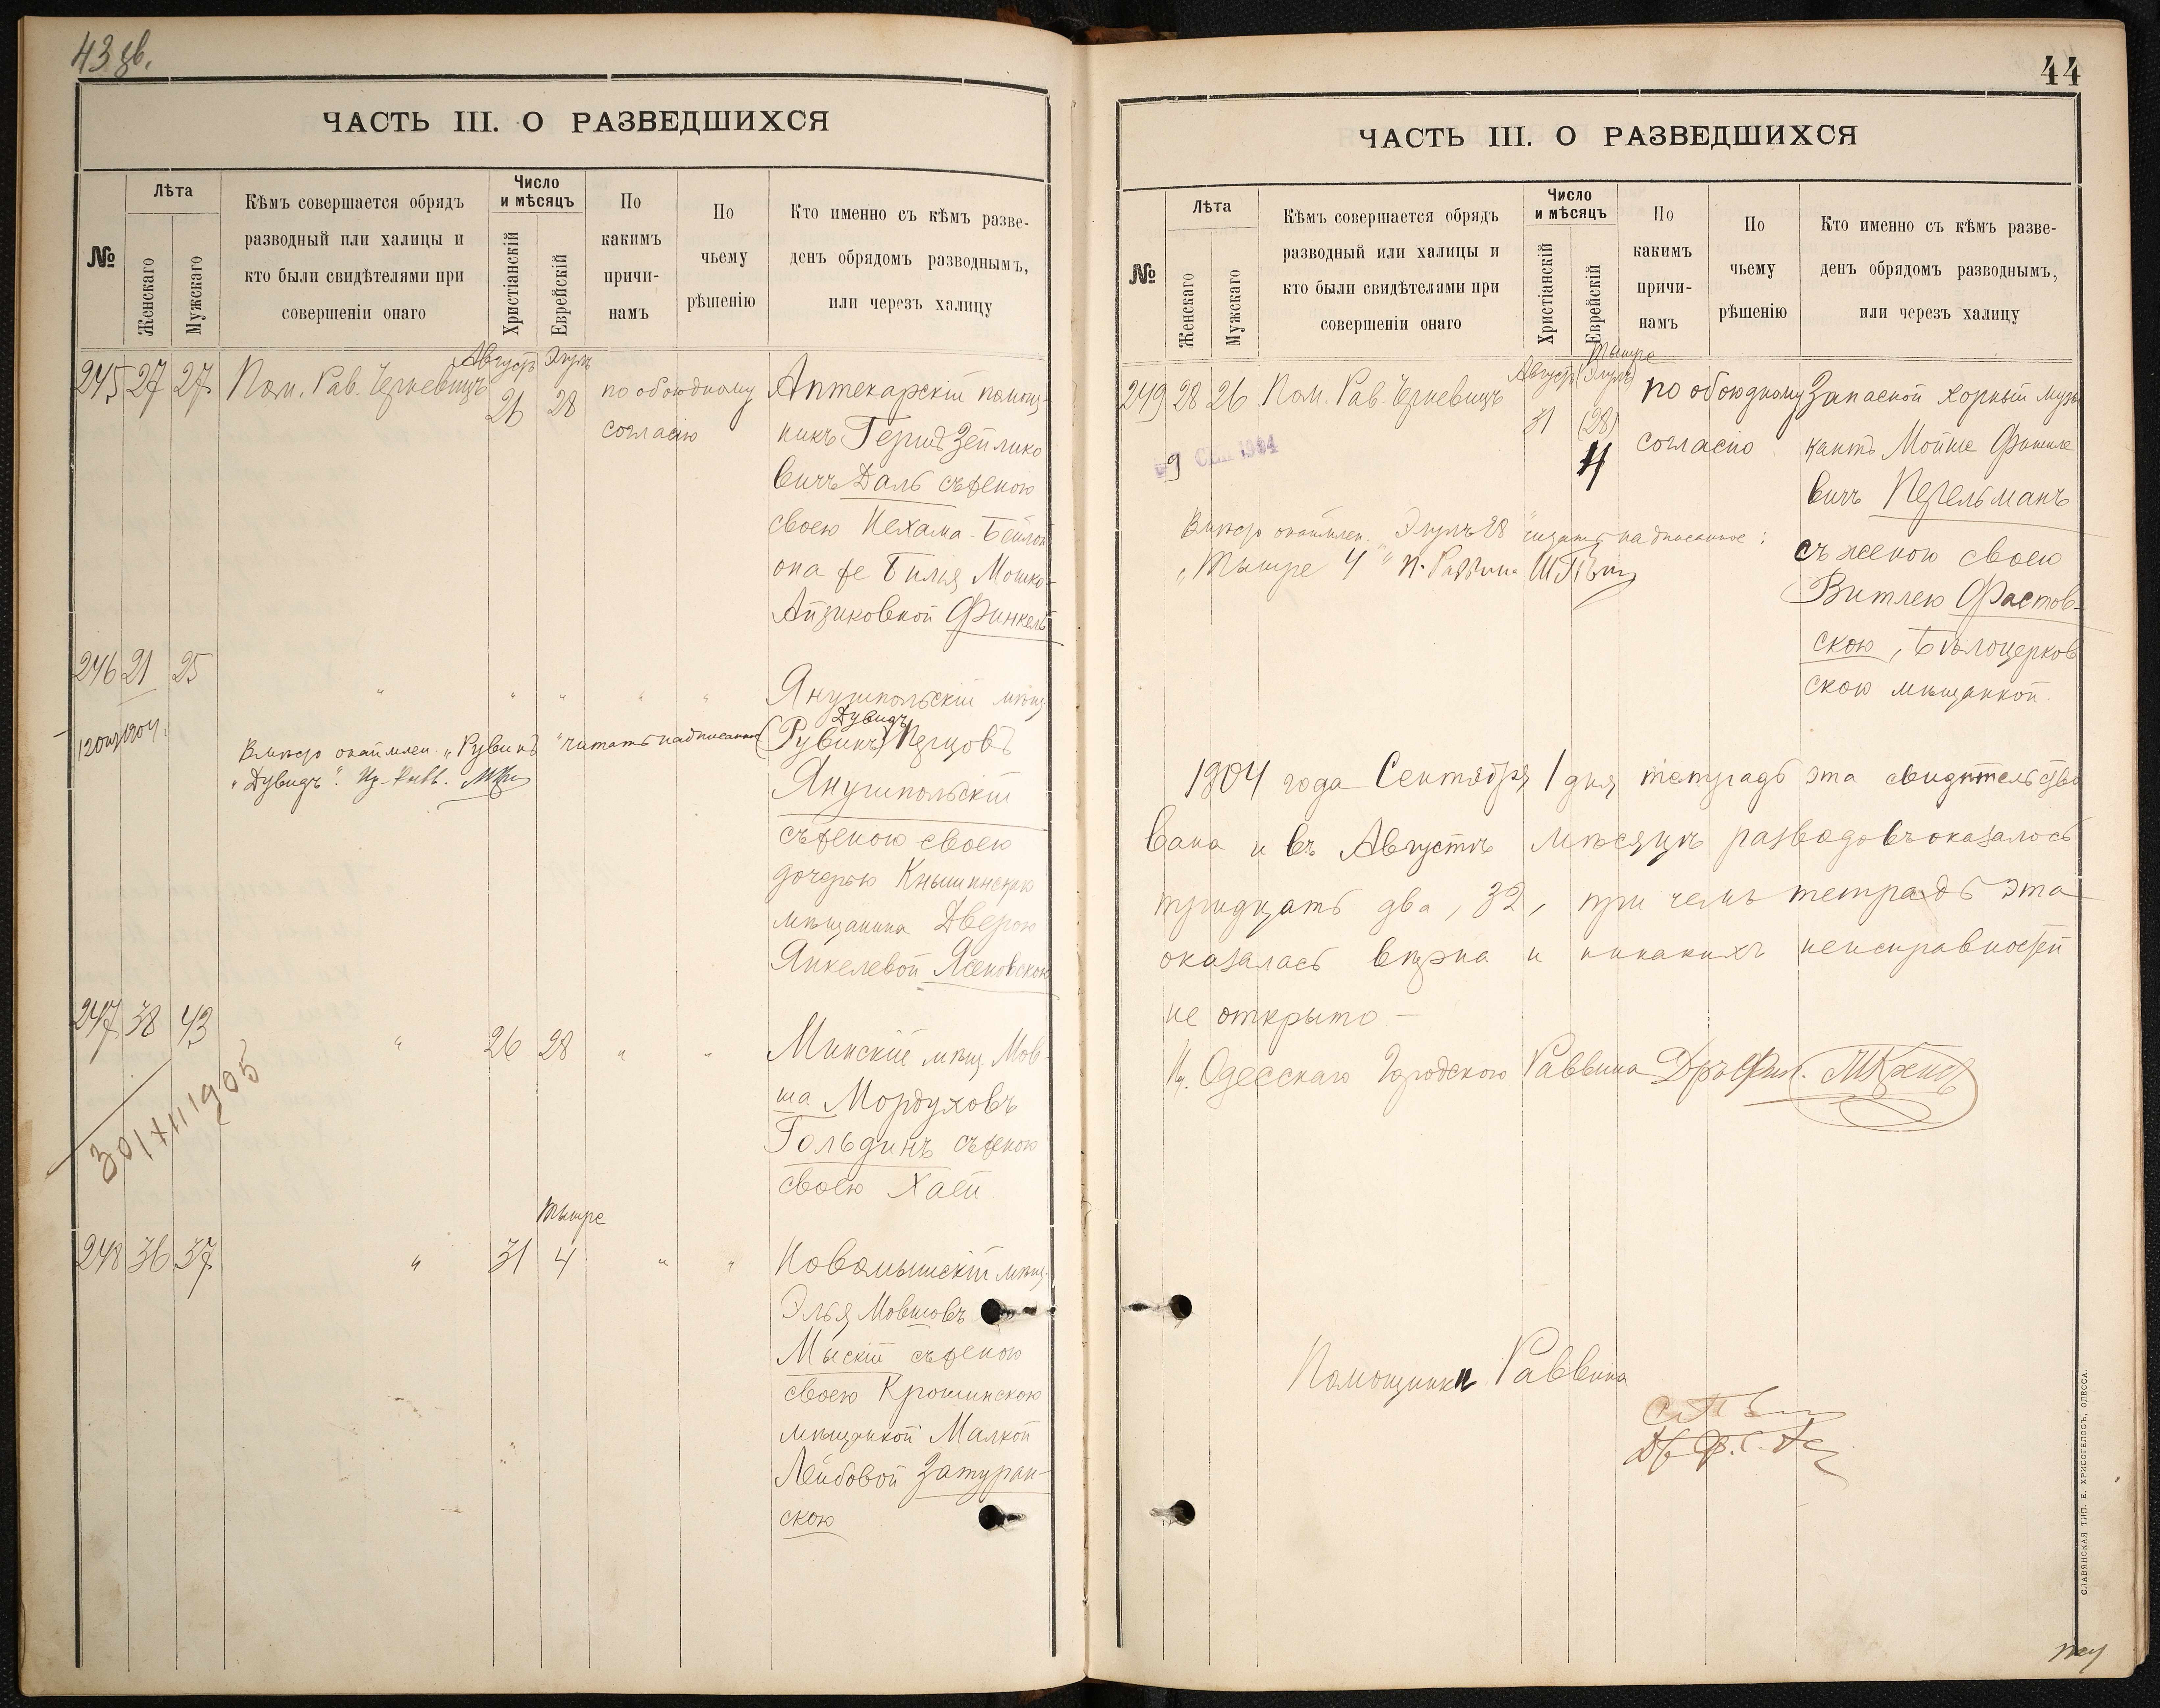 43 зв.
ЧАСТЬ III. О РАЗВЕДШИХСЯ
№
Лѣта
Женскаго
Мужскаго
Кѣмъ совершается обрядъ
разводный или халицы и
кто были свидѣтелями при
совершеніи онаго
Число
и мѣсяцъ
Христіанскій
Еврейскій
По
какимъ
причи-
намъ
По
чьему
рѣшенію
Кто именно съ кѣмъ разве-
денъ обрядомъ разводнымъ,
или черезъ халицу
245 27 27 Пом. Рав. Черневицъ Августъ 26 Элулъ 28 по обоюдному согласію
Аптекарскій помощ-
никъ Гершъ Зейлико
вичъ Даль съ женою
своею Нехама-Бейлой
она же Билія Мошко-
Айзиковной Финкель
246 21 25 " " " " "
Янушпольскій мѣщ.
Дувидъ
(Рувинъ) Перцовъ
Янушпольскій
съ женою своею
дочерью Кнышинскаго
мѣщанина Дверою
Янкелевой Ясеновскою
1904
Вмѣсто окаймлен. „Рувинъ" читать надписанное
„Дувидъ". Ир. Равв.
247 38 43 " 26 28 " "
Минскій мѣщ. Мов-
ша Мордуховъ
Гольдинъ съ женою
своею Хаей.
30/XII 1905
Тышре
248 36 37 " 31 4 " "
Новомышскій мѣщ.
Элья Мовшовъ
Мыскій съ женою
своею Крошинскою
мѣщанкой Малкой
Лейбовой Затуран-
скою
44
ЧАСТЬ III. О РАЗВЕДШИХСЯ
№
Лѣта
Женскаго
Мужскаго
Кѣмъ совершается обрядъ
разводный или халицы и
кто были свидѣтелями при
совершеніи онаго
Число
и мѣсяцъ
Христіанскій
Еврейскій
По
какимъ
причи-
намъ
По
чьему
рѣшенію
Кто именно съ кѣмъ разве-
денъ обрядомъ разводнымъ,
или черезъ халицу
Тышре
249 28 26 Пом. Рав. Черневицъ Августъ 31 (Элулъ) (28) 4 по обоюдному согласію
Запасной хорный музы
кантъ Мойше Фишеле
вичъ Перельманъ
съ женою своею
Витлею Фастов-
скою, Бѣлоцерков
скою мѣщанкой.
9 СЕН 1904
Вмѣсто окаймлен. „Элулъ 28" читать надписанное:
„Тышре 4" п. Раввина
1904 года Сентября 1 дня тетрадь эта свидѣтельство
вана и въ Августѣ мѣсяцѣ разводовъ оказалось
тридцать два, 32, при чемъ тетрадь эта
оказалась вѣрна и никакихъ неисправностей
не открыто.—
И. Одесскаго Городского Раввина Д-ръ Фил.
Помощники Раввина
СЛАВЯНСКАЯ ТИП. Е. ХРИСОГЕЛОСЪ, ОДЕССА.